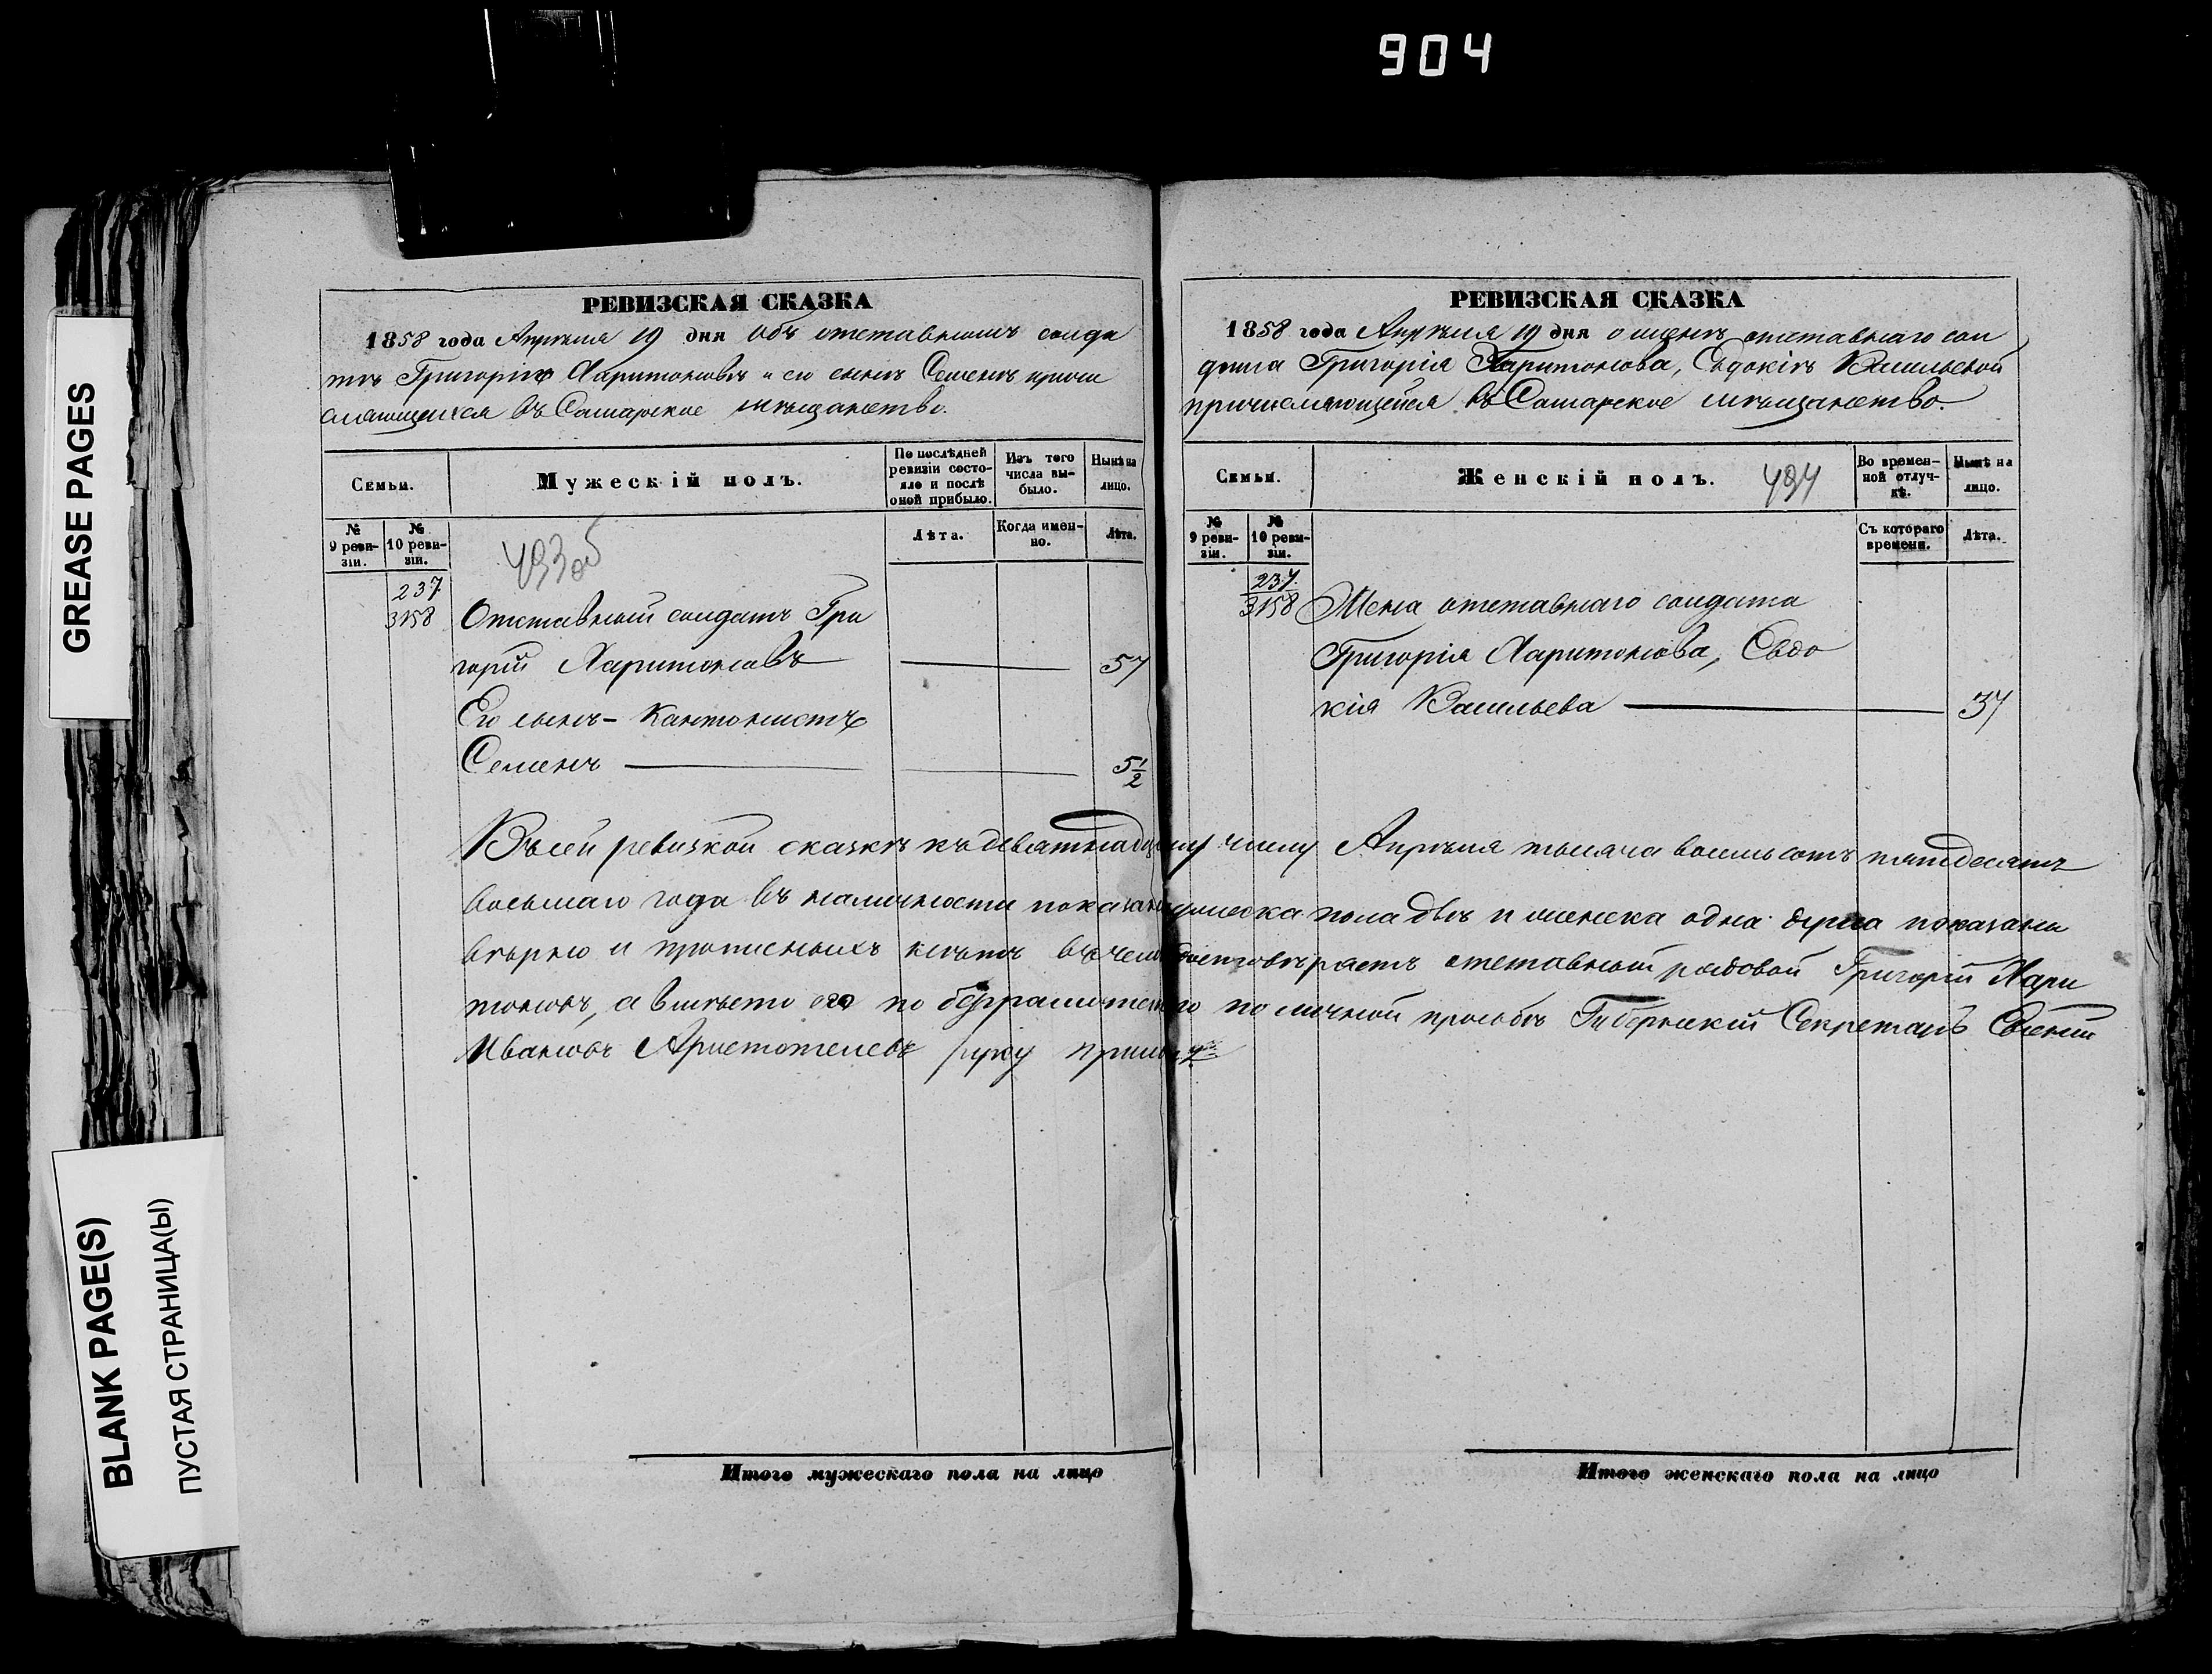 904
GREASE PAGES
BLANK PAGE(S)
ПУСТАЯ СТРАНИЦА(Ы)
РЕВИЗСКАЯ СКАЗКА
1858 года Апрѣля 19 дня Объ отставномъ солда
тѣ Григорiѣ Харитоновѣ и его сынѣ Семенѣ причи
сляющихся въ Самарское мѣщанство.
Семьи.
Мужескій полъ.
По послѣдней ревизіи состояло и послѣ оной прибыло.
Изъ того числа выбыло.
Нынѣ на лицо.
№ 9 ревизіи.
№ 10 ревизіи.
Лѣта.
Когда именно.
Лѣта.
493 об
237.
3158 Отставной солдатъ Гри
горій Харитоновъ 57
Его сынъ - Кантонистъ
Семенъ 5 1/2
РЕВИЗСКАЯ СКАЗКА
1858 года Апрѣля 19 дня о женѣ отставнаго сол
дата Григорія Харитонова, Евдокіѣ Васильевой
причисляющейся въ Самарское мѣщанство.
Семьи.
Женскій полъ.
494
Во временной отлучкѣ.
Нынѣ на лицо.
№ 9 ревизіи.
№ 10 ревизіи.
Съ котораго времени.
Лѣта.
237.
3158 Жена отставнаго солдата
Григорія Харитонова, Евдо
кія Васильева 37
Въ сей ревизкой сказкѣ къ девятнадцатому числу Апрѣля тысяча восемьсотъ пятдесятъ
восьмаго года въ наличности мужеска пола двѣ и женска одна душа показаны
вѣрно и прописныхъ нѣтъ въ чемъ отставной рядовой Григорій Хари
тоновъ, а вмѣсто его по безграмотству по личной просьбѣ Губернскій Секретарь Евгеній
Ивановъ Аристотелевъ руку приложилъ
Итого мужескаго пола на лицо
Итого женскаго пола на лицо